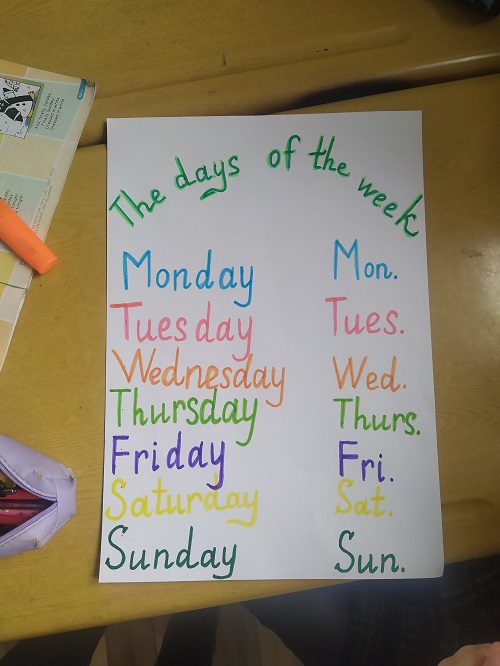 The days of the week
Monday Mon.
Tuesday Tues.
Wednesday Wed.
Thursday Thurs.
Friday Fri.
Saturday Sat.
Sunday Sun.